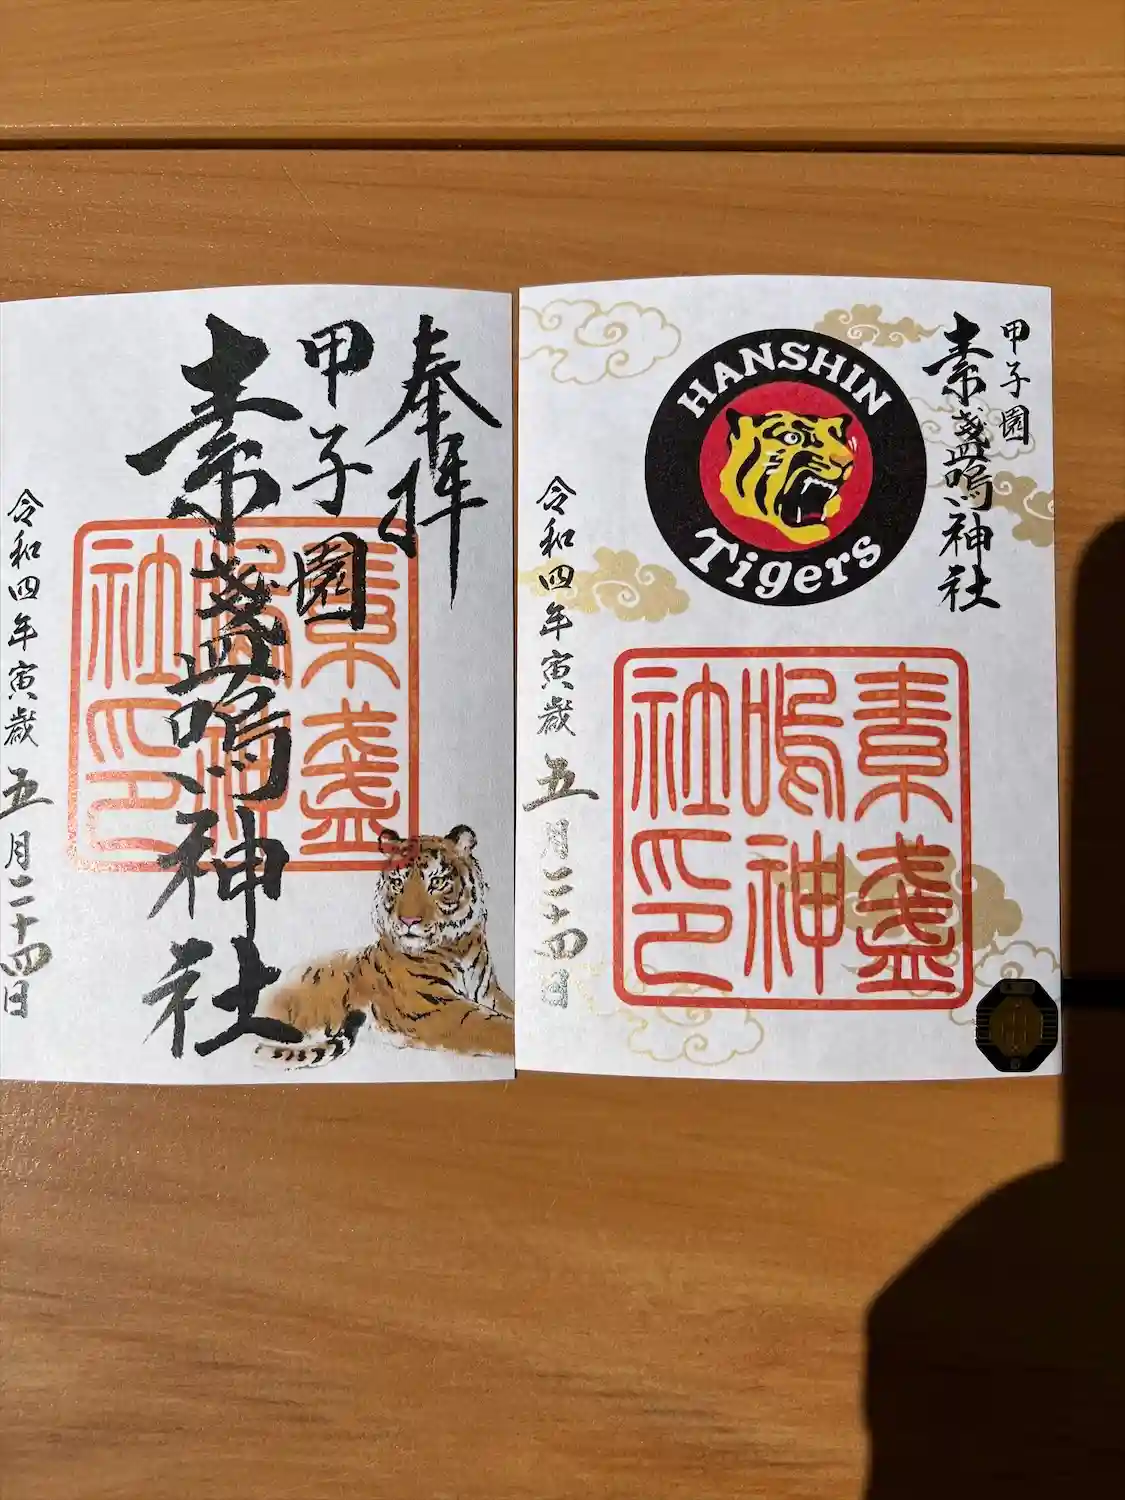 奉拝
甲子園
素盞嗚神社
素盞
嗚神
社印
令和四年寅歳
五月二十四日
HANSHIN
Tigers
甲子園
素盞嗚神社
素盞
嗚神
社印
令和四年寅歳
五月二十四日